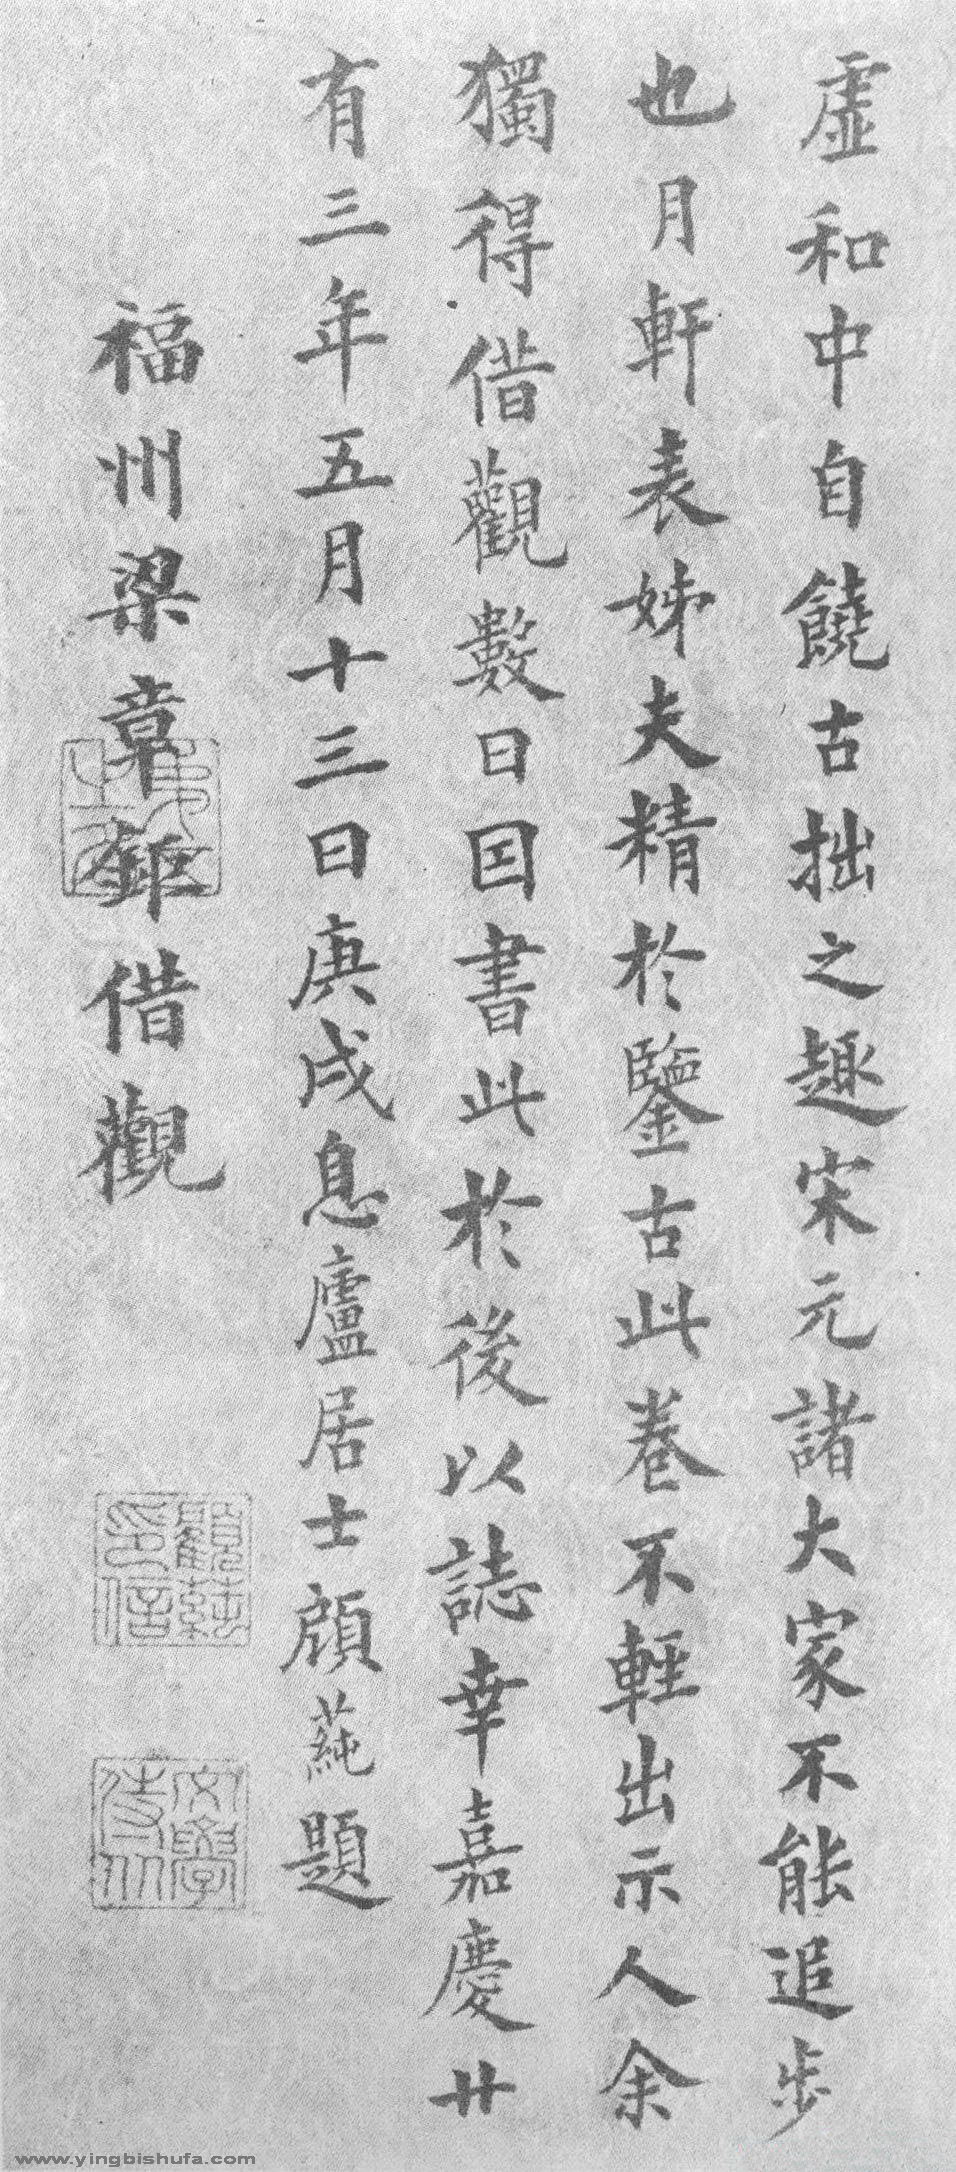 虛和中自饒古拙之趣宋元諸大家不能追步
也月軒表姊夫精於鑒古此卷不輕出示人余
獨得借觀數日因書此於後以誌幸嘉慶廿
有三年五月十三日庚戌息廬居士顧蒓題
福州梁章鉅借觀
顧蒓印信
文學侍從
www.yingbishufa.com